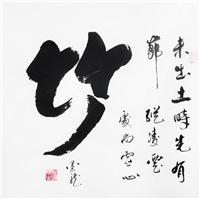 未出土時先有
節縱凌雲
處尚虛心
竹